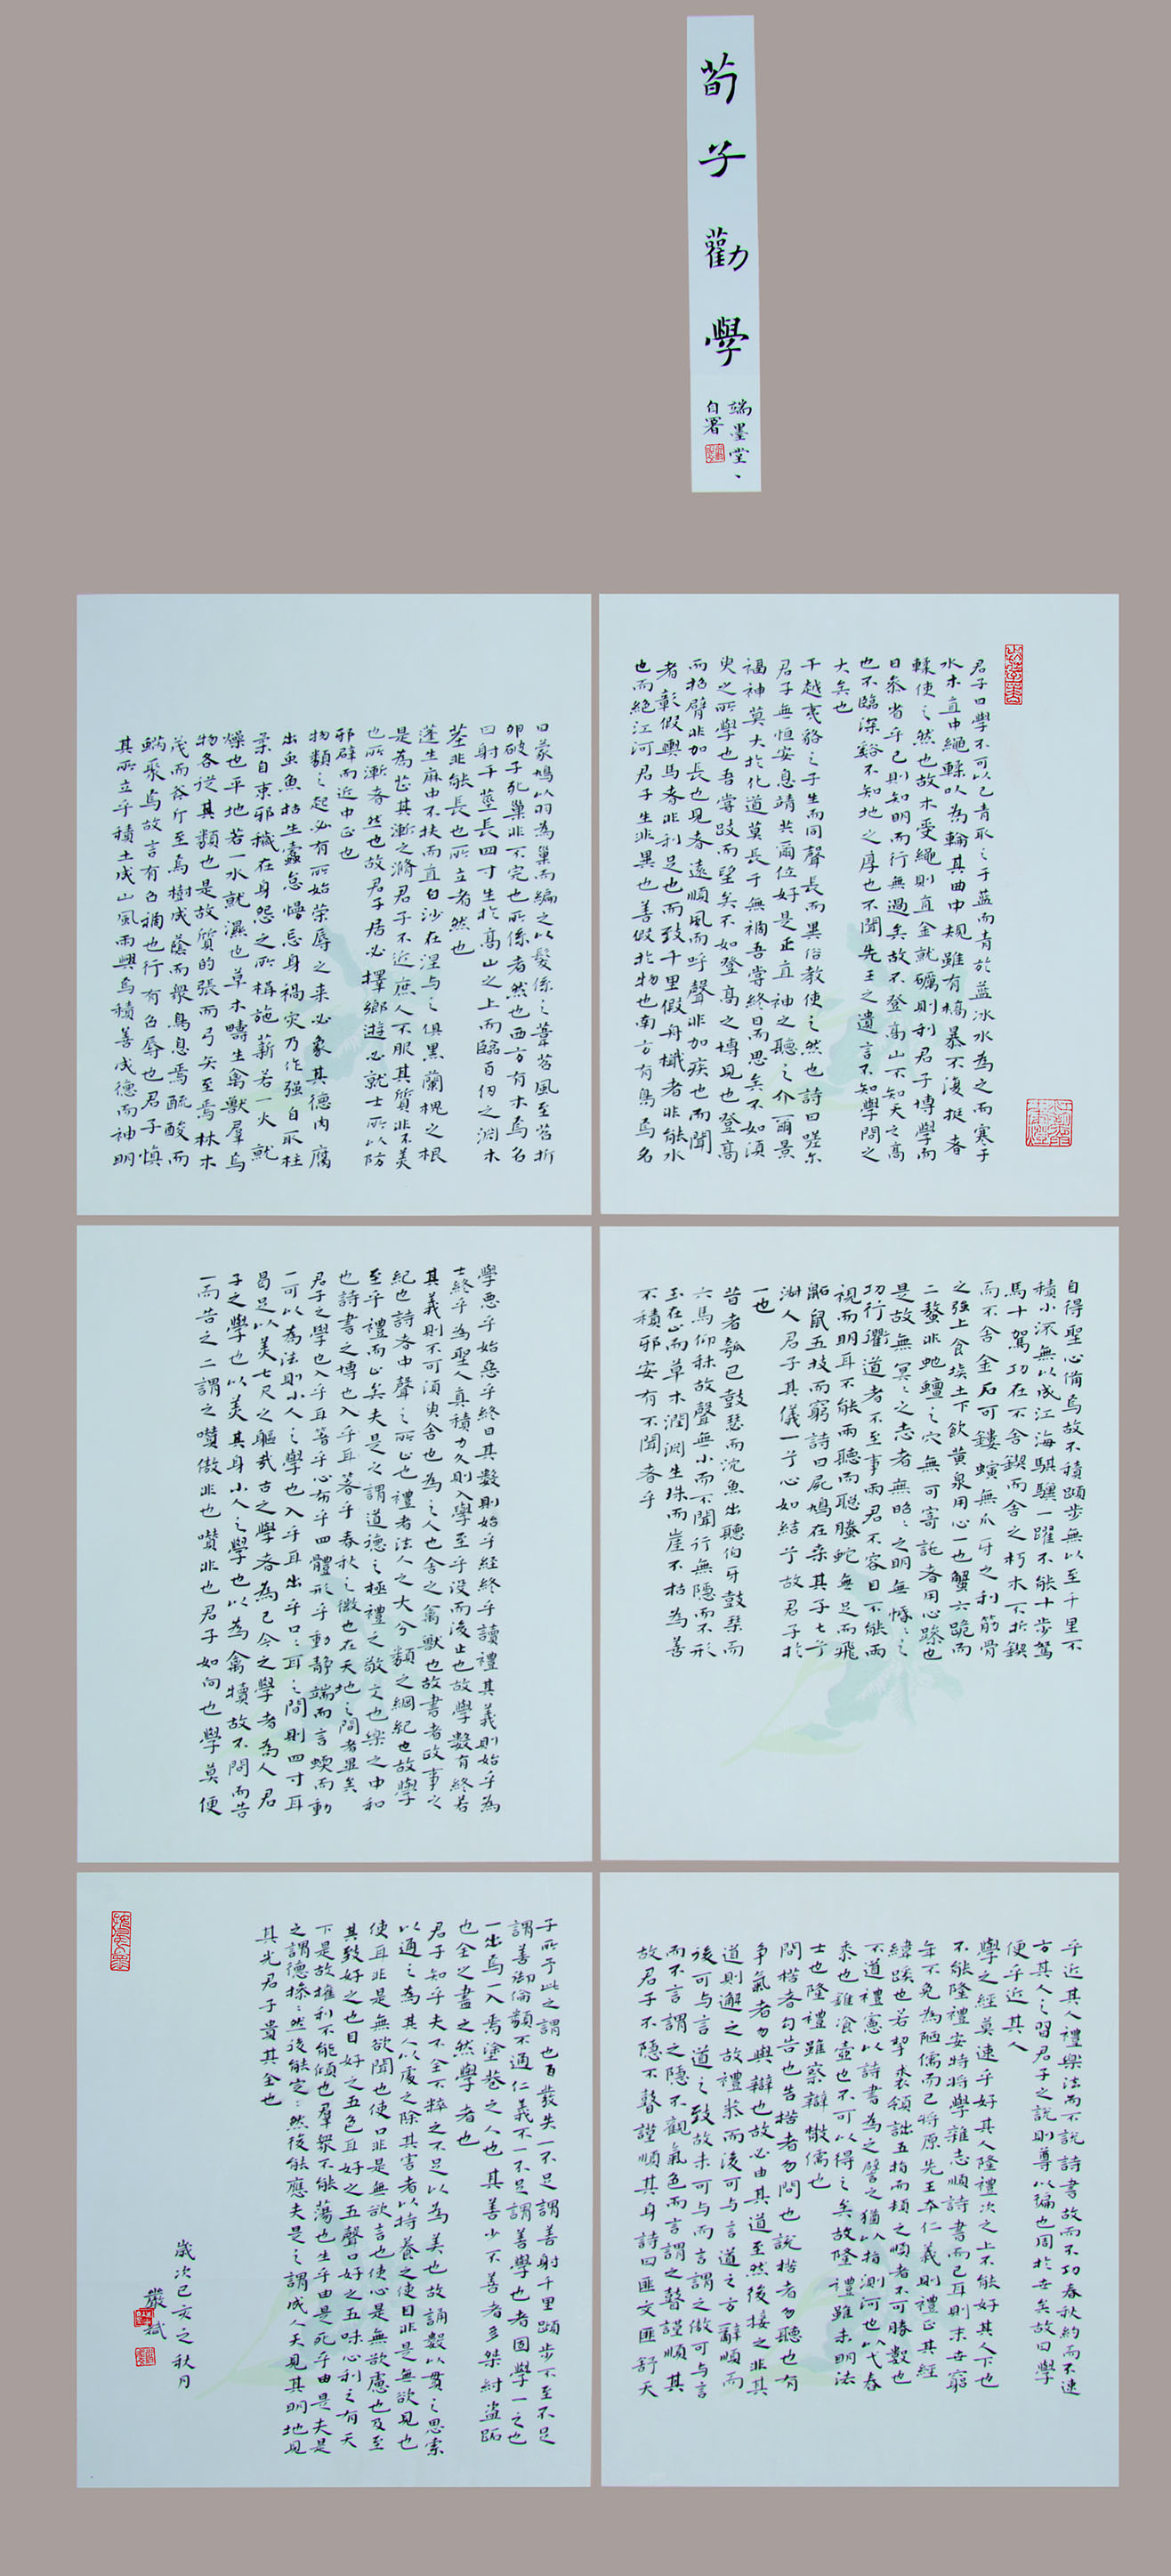 荀子勸學
端墨堂、
自署
君子曰學不可以已青取之于藍而青於藍冰水為之而寒于
水木直中繩輮以為輪其曲中規雖有槁暴不復挺者
輮使之然也故木受繩則直金就礪則利君子博學而
日叅省乎己則知明而行無過矣故不登高山不知天之高
也不臨深谿不知地之厚也不聞先王之遺言不知學問之
大矣也
干越夷貉之子生而同聲長而異俗教使之然也詩曰嗟尔
君子無恒安息靖共爾位好是正直神之聽之介爾景
福神莫大於化道莫長于無禍吾嘗終日而思矣不如須
臾之所學也吾嘗跂而望矣不如登高之博見也登高
而招臂非加長也見者遠順風而呼聲非加疾也而聞
者彰假輿馬者非利足也而致千里假舟檝者非能水
也而絕江河君子生非異也善假於物也南方有鳥焉名
曰蒙鳩以羽為巢而編之以髮係之葦苕風至苕折
卵破子死巢非不完也所係者然也西方有木焉名
曰射干莖長四寸生於高山之上而臨百仞之淵木
莖非能長也所立者然也
蓬生麻中不扶而直白沙在涅与之俱黑蘭槐之根
是為芷其漸之滫君子不近庶人不服其質非不美
也所漸者然也故君子居必擇鄉遊必就士所以防
邪辟而近中正也
物類之起必有所始榮辱之来必象其德肉腐
出虫魚枯生蠹怠慢忘身禍灾乃作强自取柱
柔自束邪穢在身怨之所構施薪若一火就
燥也平地若一水就濕也草木疇生禽獸羣焉
物各從其類也是故質的張而弓矢至焉林木
茂而斧斤至焉樹成蔭而衆鳥息焉醯酸而
蜹聚焉故言有召禍也行有召辱也君子慎
其所立乎積土成山風雨興焉積善成德而神明
自得聖心備焉故不積蹞步無以至千里不
積小流無以成江海騏驥一躍不能十步駑
馬十駕功在不舍鍥而舍之朽木不折鍥
而不舍金石可鏤螾無爪牙之利筋骨
之强上食埃土下飲黄泉用心一也蟹六跪而
二螯非虵蟺之穴無可寄託者用心躁也
是故無冥〻之志者無昭〻之明無惛〻之
功行衢道者不至事兩君不容目不能兩
視而明耳不能兩聽而聰螣蛇無足而飛
鼫鼠五技而窮詩曰屍鳩在桑其子七兮
淑人君子其儀一兮心如結兮故君子於
一也
昔者瓠巴鼓瑟而沈魚出聽伯牙鼓琴而
六馬仰秣故聲無小而不聞行無隱而不形
玉在山而草木潤淵生珠而崖不枯為善
不積邪安有不聞者乎
學惡乎始惡乎終曰其數則始乎経終乎讀禮其義則始乎為
士終乎為聖人真積力久則入學至乎没而後止也故學數有終若
其義則不可須臾舍也為之人也舍之禽獸也故書者政事之
紀也詩者中聲之所止也禮者法之大分類之綱紀也故學
至乎禮而止矣夫是之謂道德之極禮之敬文也樂之中和
也詩書之博也入乎耳著乎春秋之微也在天地之間者畢矣
君子之學也入乎耳著乎心布乎四體形乎動靜端而言蝡而動
一可以為法則小人之學也入乎耳出乎口口耳之間則四寸耳
曷足以美七尺之軀哉古之學者為己今之學者為人君
子之學也以美其身小人之學也以為禽犢故不問而告
一而告之二謂之囋傲非也囋非也君子如向也學莫便
乎近其人禮樂法而不說詩書故而不切春秋約而不速
方其人之習君子之說則尊以徧也周於世矣故曰學
便乎近其人
學之経莫速乎好其人隆禮次之上不能好其人下也
不能隆禮安特將學雜志順詩書而已耳則末世窮
年不免為陋儒而已將原先王本仁義則禮正其經
緯蹊也若挈裘領詘五指而頓之順者不可勝數也
不道禮憲以詩書為之譬之猶以指測河也以戈舂
黍也錐飡壺也不可以得之矣故隆禮雖未明法
士也隆禮雖察辯散儒也
問楛者勿告也告楛者勿問也說楛者勿聽也有
爭氣者勿與辯也故必由其道至然後接之非其
道則避之故禮恭而後可与言道之方辭順而
後可与言道之致故未可与而言謂之傲可与言
而不言謂之隱不觀氣色而言謂之瞽謹順其
故君子不隱不瞽謹順其身詩曰匪交匪舒天
子所予此之謂也百發失一不足謂善射千里蹞步不至不足
謂善御倫類不通仁義不一不足謂善學也者固學一之也
一出焉一入焉塗巷之人也其善少不善者多桀紂盜跖
也全之盡之然學者也
君子知乎夫不全不粹之不足以為美也故誦數以貫之思索
以通之為其人以處之除其害者以持養之使目非是無欲見也
使耳非是無欲聞也使口非是無欲言也使心是無欲慮也及至
其致好之也目好之五色耳好之五聲口好之五味心利之有天
下是故權利不能傾也羣衆不能蕩也生乎由是死乎由是夫是
之謂德操〻然後能定〻然後能應夫是之謂成人天見其明地見
其光君子貴其全也
歲次己亥之秋月
嚴斌